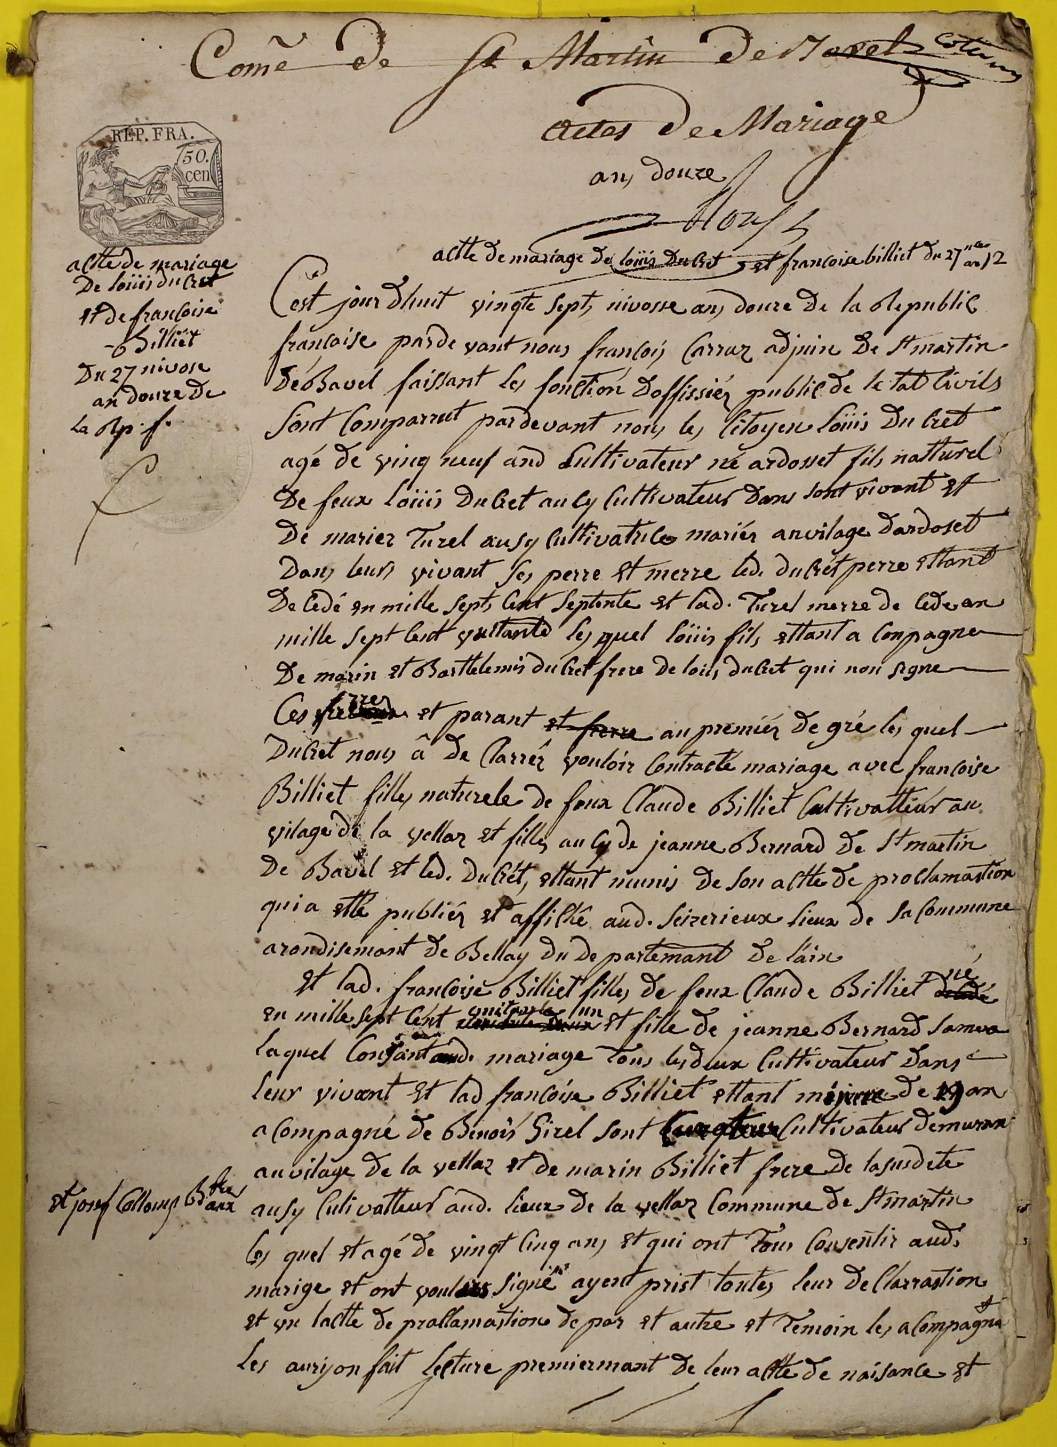 Comẽ de St Martin de Bavel
actes de Mariage
an douze
REP. FRA.
50.
cen
actte de mariage de loüis ducret et françoise billiet du 27 nse an 12
actte de mariage
De loüis ducret
et de françoise
Billiet
Du 27 nivose
an douze de
la Rp. f.
C'est jour dhuit vingte sept nivosse an douze de la Republic
françoise parde vant nous françois Carraz adjoin De St martin
de Bavel faissant les fonction Doffissiér public de le tat Civils
Sont Comparrut pardevant nous les Citoyen Loüis Du Cret
agé de ving neuf and Cultivateur né ardosset fils natturel
De feux Loüis DuCret aucy Cultivateur Dans sont vivant et
De mariez Turel ausy Cultivatrice mariér anvilage Dardoset
Dans leurs vivant ses perre et merre led. ducrét perre ettant
De Cedé en mille sept Cent septente et lad. Turel merre de Cede an
mille sept Cent les quel loüis fils ettant a Conpagne
De marin et Barthelemis du Cret frere de loüis ducret qui non signe
Ces et parant et frerre au premiér de gré les quel
DuCret nous â de Clarrér vouloir Contracté mariage avec françoise
Billiet filles naturele de feux Claude Billiet Cultivattéur au
vilage de la vellaz et filles aucy de jeanne Bernard de St martin
De Bavel et led. DuCrét, ettant munis de son actte de proclamastion
qui a etté publiér et affiché aud. Seizerieux Lieux de sa Commune
arondisemant de Bellay du departemant de l'ain
né
Et lad. françoise Billiet filles de feux Claude Billiet
un
en mille sept Cent et fille de jeanne Bernard samva
laquel Consant aud. mariage Tous les deux Cultivateur Dans
leur vivant et lad françoise Billiet ettant de 19 an
a Compagné de Benois Girel sont Cultivateur demuran
au vilage de la vellaz et de marin Billiet frere de lasusdite
et josef Collomb
ausy Cultivatteur aud. lieux de la vellaz Commune de St martin
les quel et agé de vingt Cinq ans et qui ont Tous Consentir aud.
marige et ont signé ayent prist toutes leur de Clarrastion
et vu lactte de proclamastion de par et autre et Temoin les acompagnà
les auriyon fait lecture premiermant de leur actte de naisance et